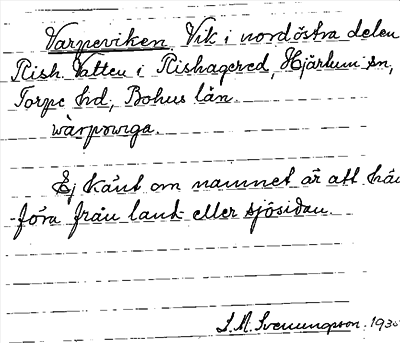 Varpeviken. Vik i nordöstra delen
Rish. Vatten i Rishagered, Hjärtum sn,
Torpe hd, Bohus län.
wàrpəviga.
Ej känt om namnet är att hän-
föra från land- eller sjösidan.
S. M. Svenungson. 193